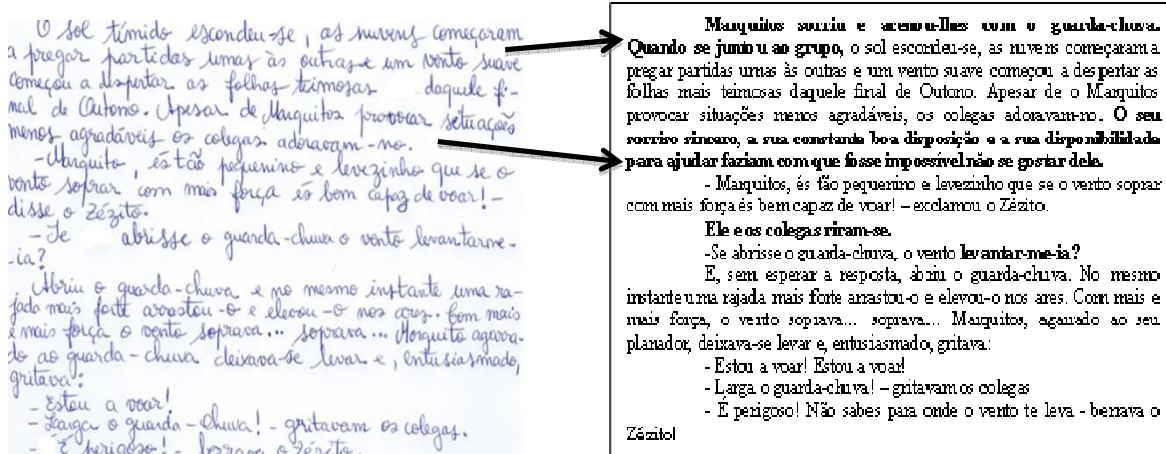 O sol tímido escondeu-se, as nuvens começaram
a pregar partidas umas às outras e um vento suave
começou a despertar as folhas teimosas daquele fi-
nal de Outono. Apesar de Marquitos provocar situações
menos agradáveis os colegas adoravam-no.
-Marquito, és tão pequenino e levezinho que se o
vento soprar com mais força és bem capaz de voar! -
disse o Zézito.
- Se abrisse o guarda-chuva o vento levantarme-
-ia?
Abriu o guarda-chuva e no mesmo instante uma ra-
jada mais forte arrastou-o e elevou-o nos ares. Com mais
e mais força o vento soprava... soprava... Marquito agarra-
do ao guarda-chuva deixava-se levar e, entusiasmado,
gritava:
- Estou a voar!
- Larga o guarda-chuva! - gritavam os colegas.
- É perigoso! - berrava o Zézito.
Marquitos sorriu e acenou-lhes com o guarda-chuva.
Quando se juntou ao grupo, o sol escondeu-se, as nuvens começaram a
pregar partidas umas às outras e um vento suave começou a despertar as
folhas mais teimosas daquele final de Outono. Apesar de o Marquitos
provocar situações menos agradáveis, os colegas adoravam-no. O seu
sorriso sincero, a sua constante boa disposição e a sua disponibilidade
para ajudar faziam com que fosse impossível não se gostar dele.
- Marquitos, és tão pequenino e levezinho que se o vento soprar
com mais força és bem capaz de voar! – exclamou o Zézito.
Ele e os colegas riram-se.
-Se abrisse o guarda-chuva, o vento levantar-me-ia?
E, sem esperar a resposta, abriu o guarda-chuva. No mesmo
instante uma rajada mais forte arrastou-o e elevou-o nos ares. Com mais e
mais força, o vento soprava... soprava... Marquitos, agarrado ao seu
planador, deixava-se levar e, entusiasmado, gritava:
- Estou a voar! Estou a voar!
- Larga o guarda-chuva! – gritavam os colegas
- É perigoso! Não sabes para onde o vento te leva - berrava o
Zézito!